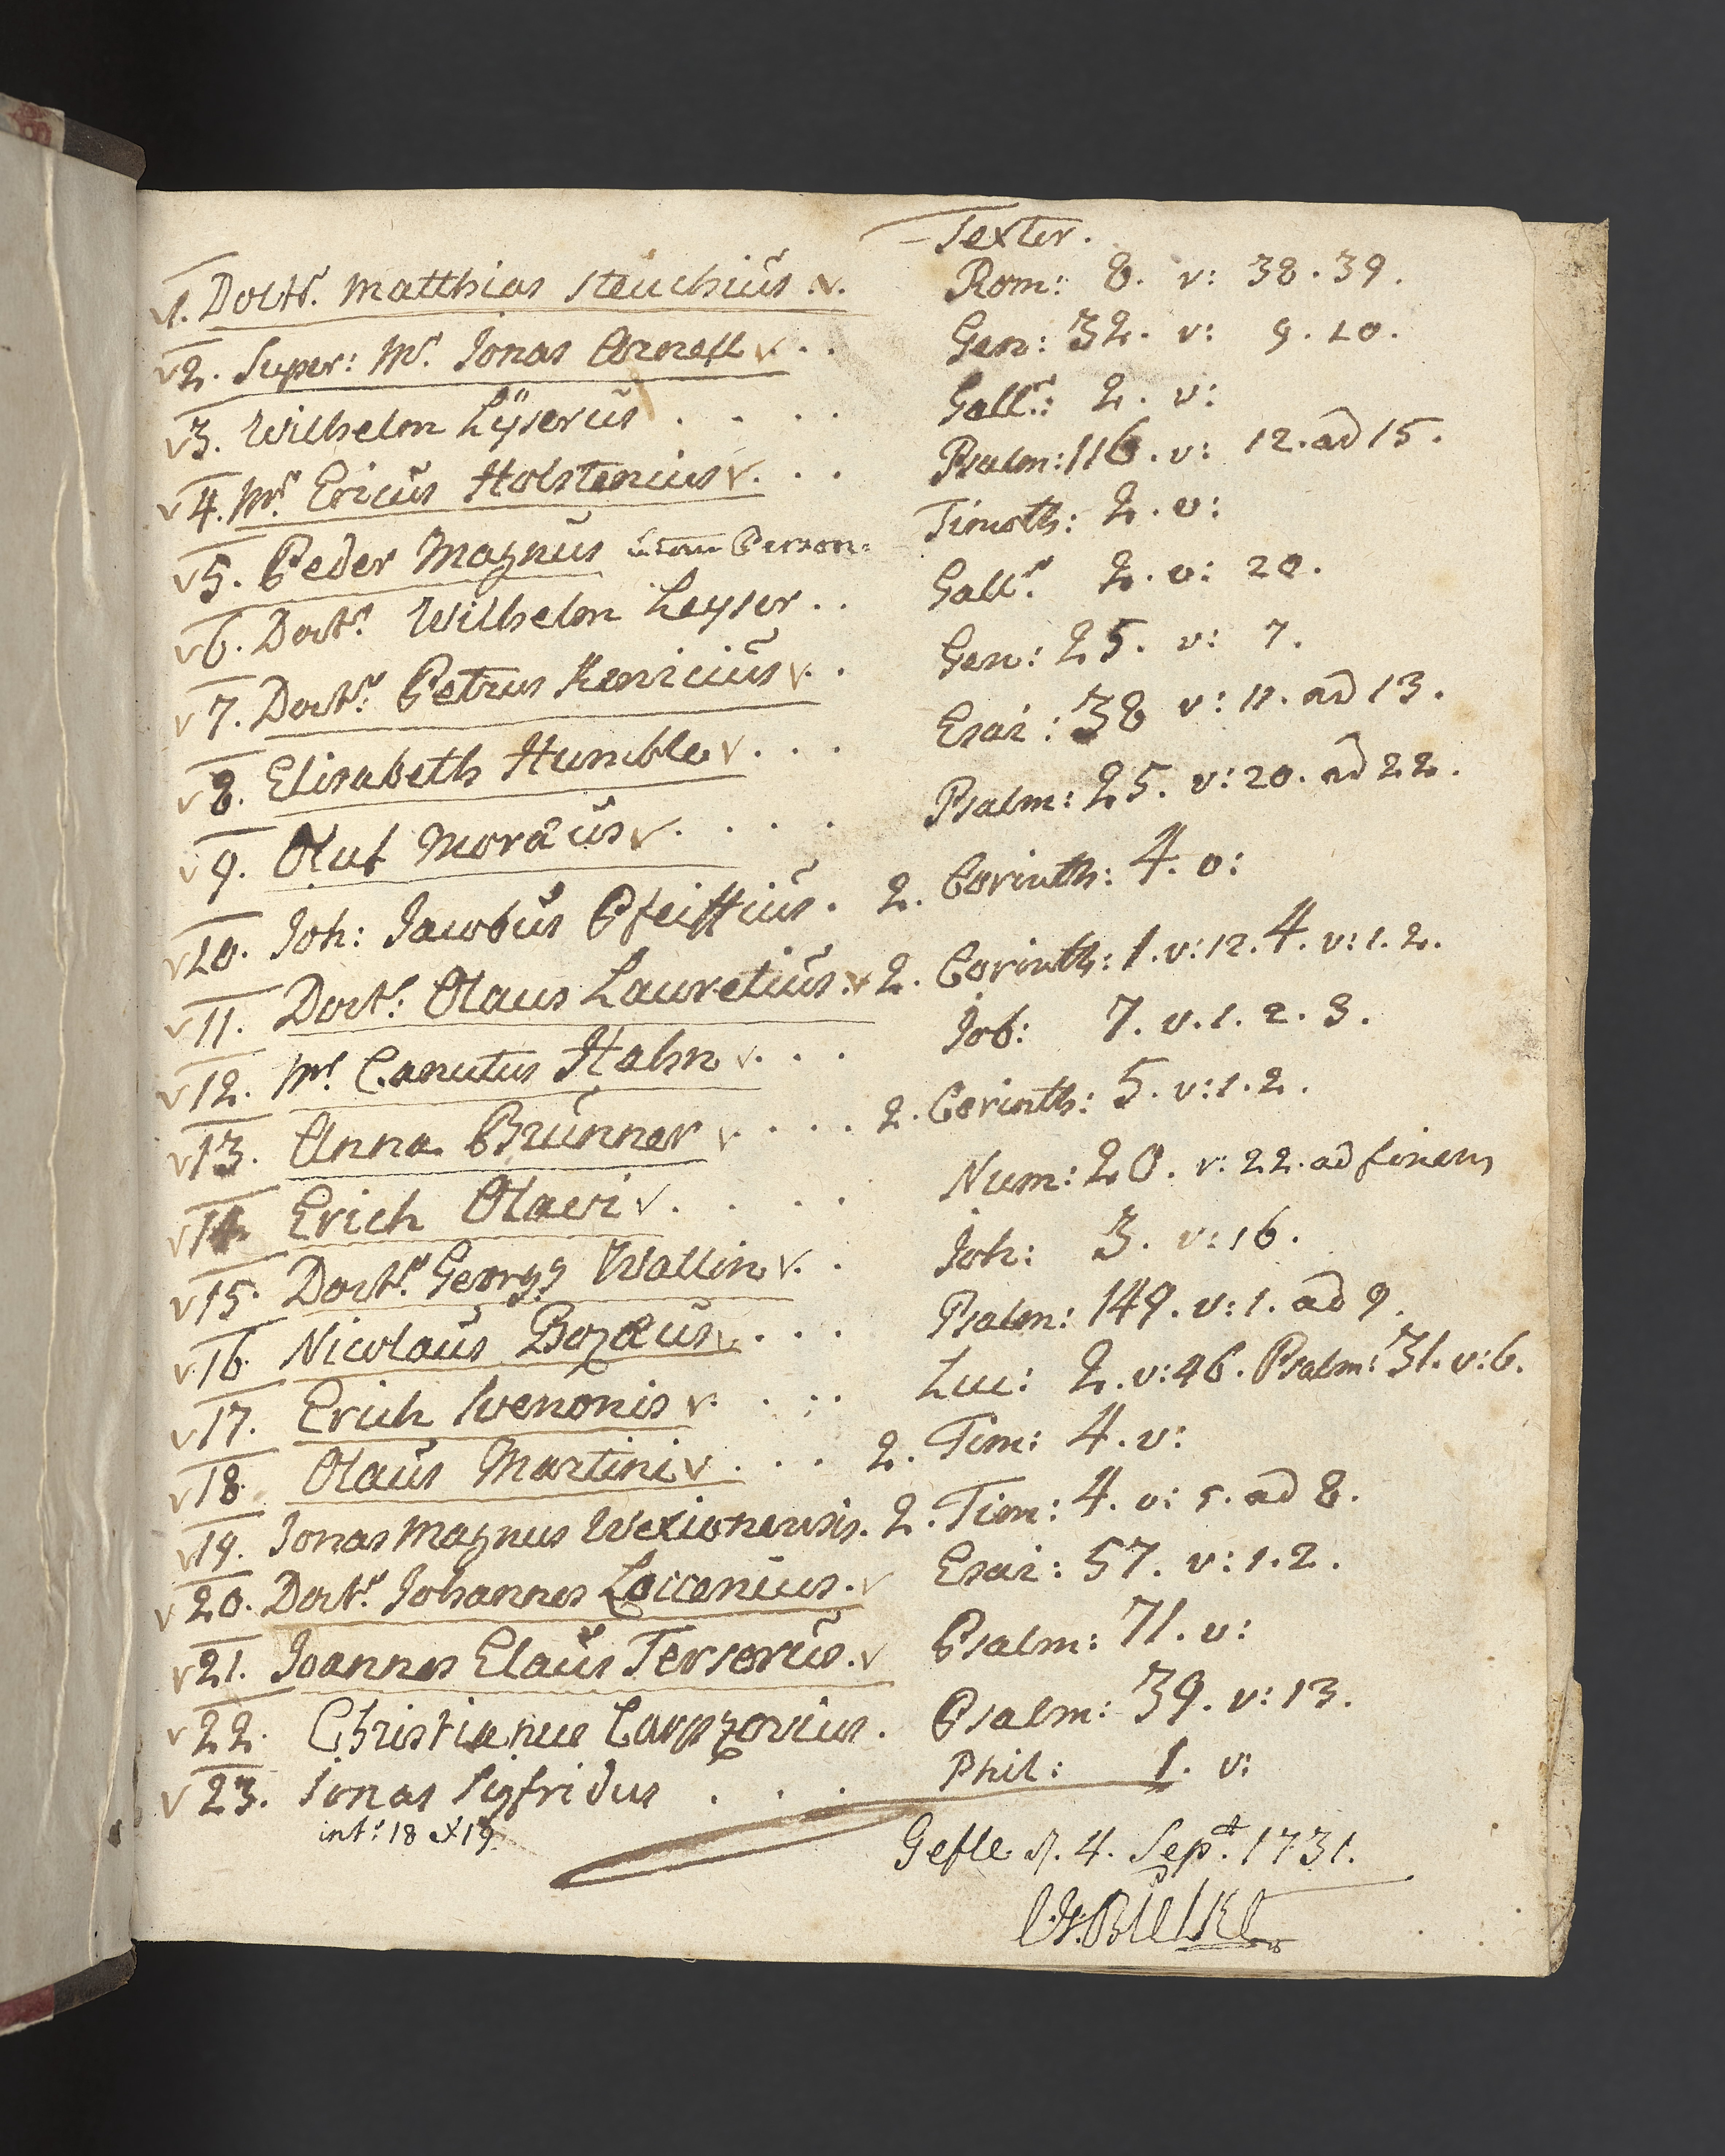 Texter.
v1. Doctr. Matthias Steuchius .v. Rom: 8. v: 38. 39.
v2. Super: Mr. Jonas Arnell v . . Gen: 32. v: 9. 10.
v3. Wilhelm Lÿserus . . . . Gall: 2. v:
v4. Mr. Ericus Holstenius v. . . Psalm: 116. v: 12. ad 15.
v5. Peder Magnus Person: Timoth: 2. v:
v6. Doctr. Wilhelm Leyser . . Gall. 2. v: 20.
v7. Doctr. Petrus Kenicius v. . Gen: 25. v: 7.
v8. Elisabeth Humble v . . . Esai: 38 v: 11. ad 13.
v9. Oluf Moræus v . . . . Psalm: 25. v: 20. ad 22.
v10. Joh: Jacobus Pfeiffius . 2. Corinth: 4. v:
v11. Doct. Olaus Lauretius .v 2. Corinth: 1. v: 12. 4. v: 1. 2.
v12. Mr. Canutus Hahn v. . . Job: 7. v. 1. 2. 3.
v13. Anna Brunner v . . . . 2. Corinth: 5. v: 1. 2.
v14. Erich Olaevi v . . . . Num: 20. v: 22. ad finem
v15. Doctr. Georg Wallin v. . Joh: 3. v: 16.
v16. Nicolaus Bozæus v. . . . Psalm: 149. v: 1. ad 9.
v17. Erich Svenonis v. . . . Luc: 2. v: 46. Psalm: 31. v: 6.
v18. Olaus Martini v . . . 2. Tim: 4. v:
v19. Jonas Magnus Wexionensis. 2. Tim: 4. v: 5. ad 8.
v20. Doctr. Johannes Loccenius. v Esai: 57. v: 1. 2.
v21. Joannes Elaus Terserus. v Psalm: 71. v:
v22. Christianus Carpzovius. Psalm: 39. v: 13.
v23. Jonas Sigfridus . . . Phil: 1. v:
int: 18 et 19.
Gefle d. 4. Sept. 1731.